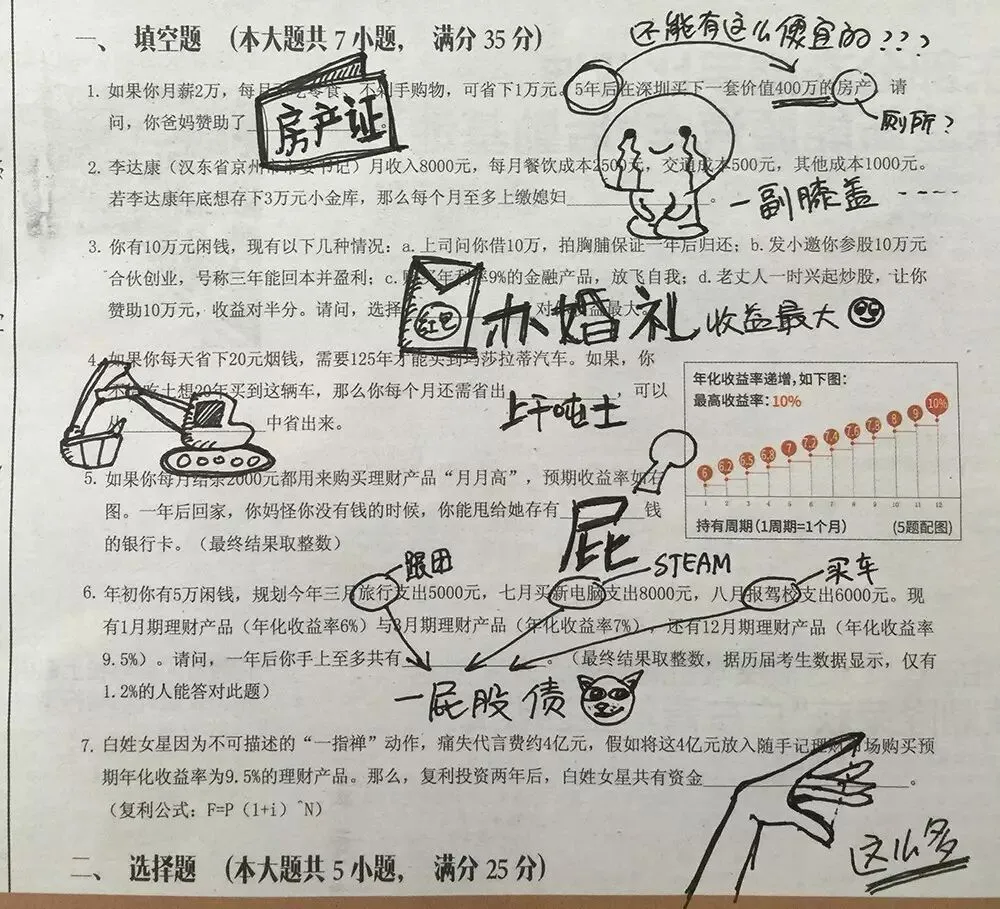 一、 填空题 （本大题共 7 小题， 满分 35 分）
还能有这么便宜的???
1. 如果你月薪2万，每月 零食、不 手购物，可省下1万元。5年后在深圳买下一套价值400万的房产。请
问，你爸妈赞助了
房产证
厕所？
2. 李达康（汉东省京州市市委书记）月收入8000元，每月餐饮成本2500元，交通成本500元，其他成本1000元。
若李达康年底想存下3万元小金库，那么每个月至多上缴媳妇____________。
一副膝盖 ----
3. 你有10万元闲钱，现有以下几种情况：a.上司问你借10万，拍胸脯保证一年后归还；b.发小邀你参股10万元
合伙创业，号称三年能回本并盈利；c. 年利率9%的金融产品，放飞自我；d.老丈人一时兴起炒股，让你
赞助10万元，收益对半分。请问，选择 对 收益最大。
红包
办婚礼 收益最大
4. 如果你每天省下20元烟钱，需要125年才能买到玛莎拉蒂汽车。如果，你
不 吃土想20年买到这辆车，那么你每个月还需省出__________，可以
中省出来。
上千吨土
年化收益率递增，如下图：
最高收益率：10%
6 6.2 6.5 6.8 7 7.2 7.4 7.6 7.8 8 9 10%
1 2 3 4 5 6 7 8 9 10 11 12
持有周期（1周期=1个月） （5题配图）
5. 如果你每月结余2000元都用来购买理财产品“月月高”，预期收益率如右
图。一年后回家，你妈怪你没有钱的时候，你能甩给她存有________钱
的银行卡。（最终结果取整数）
屁
跟团
STEAM
买车
6. 年初你有5万闲钱，规划今年三月旅行支出5000元，七月买新电脑支出8000元，八月报驾校支出6000元。现
有1月期理财产品（年化收益率6%）与3月期理财产品（年化收益率7%），还有12月期理财产品（年化收益率
9.5%）。请问，一年后你手上至多共有____________。（最终结果取整数，据历届考生数据显示，仅有
1.2%的人能答对此题）
一屁股债
7. 白姓女星因为不可描述的“一指禅”动作，痛失代言费约4亿元，假如将这4亿元放入随手记理财市场购买预
期年化收益率为9.5%的理财产品。那么，复利投资两年后，白姓女星共有资金____________________。
（复利公式：F=P（1+i）^N）
这么多
二、 选择题 （本大题共 5 小题， 满分 25 分）